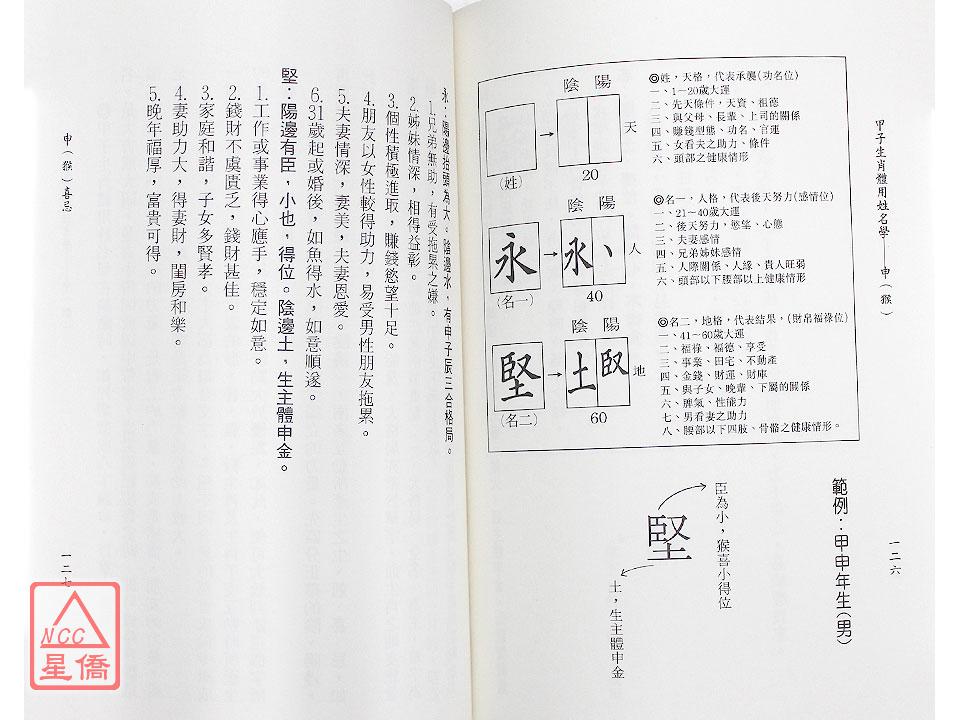 甲子生肖體用姓名學——申(猴)
陰 陽
天
(姓)
20
◎姓，天格，代表承襲(功名位)
一、1～20歲大運
二、先天條件，天資、祖德
三、與父母、長輩、上司的關係
四、賺錢型態、功名、官運
五、女看夫之助力、條件
六、頭部之健康情形
陰 陽
永
永 丶
人
(名一)
40
◎名一，人格，代表後天努力(感情位)
一、21～40歲大運
二、後天努力，慾望、心態
三、夫妻感情
四、兄弟姊妹感情
五、人際關係、人緣、貴人旺弱
六、頭部以下腰部以上健康情形
陰 陽
堅
土 臤
地
(名二)
60
◎名二，地格，代表結果，(財帛福祿位)
一、41～60歲大運
二、福祿、福德、享受
三、事業、田宅、不動產
四、金錢、財運、財庫
五、與子女、晚輩、下屬的關係
六、脾氣、性能力
七、男看妻之助力
八、腰部以下四肢、骨骼之健康情形。
範例：甲申年生(男)
臣為小，猴喜小得位
堅
土，生主體申金
一二六
永：陽邊抬頭為大。陰邊永，有申子辰三合格局。
1.兄弟無助，有受拖累之嫌。
2.姊妹情深，相得益彰。
3.個性積極進取，賺錢慾望十足。
4.朋友以女性較得助力，易受男性朋友拖累。
5.夫妻情深，妻美，夫妻恩愛。
6.31歲起或婚後，如魚得水，如意順遂。
堅：陽邊有臣，小也，得位。陰邊土，生主體申金。
1.工作或事業得心應手，穩定如意。
2.錢財不虞匱乏，錢財甚佳。
3.家庭和諧，子女多賢孝。
4.妻助力大，得妻財，閨房和樂。
5.晚年福厚，富貴可得。
申(猴)喜忌
一二七
NCC
星僑